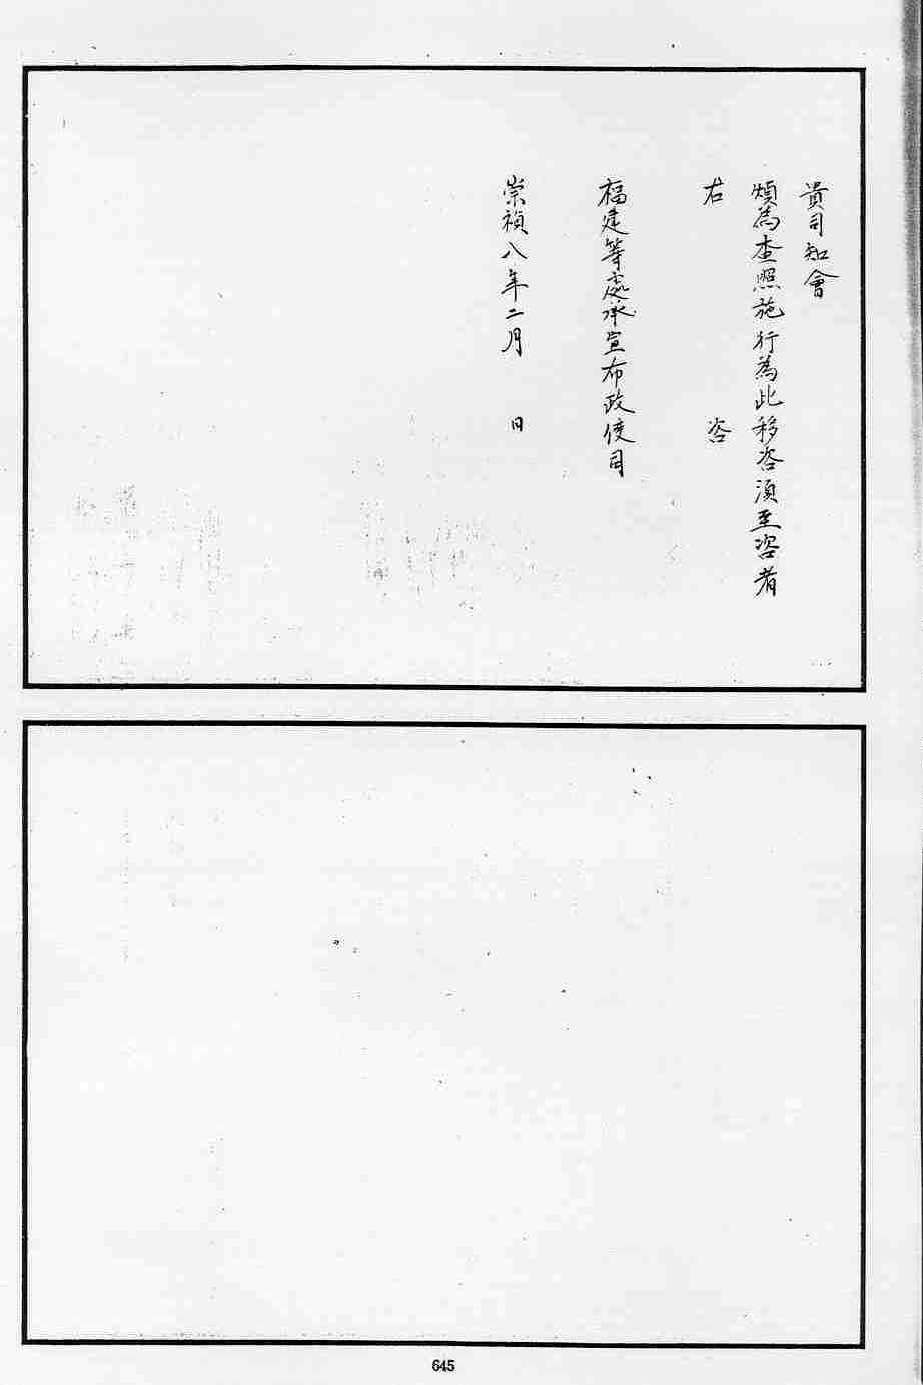 貴司知會
煩為查照施行為此移咨須至咨者
右　咨
福建等處承宣布政使司
崇禎八年二月　日
645